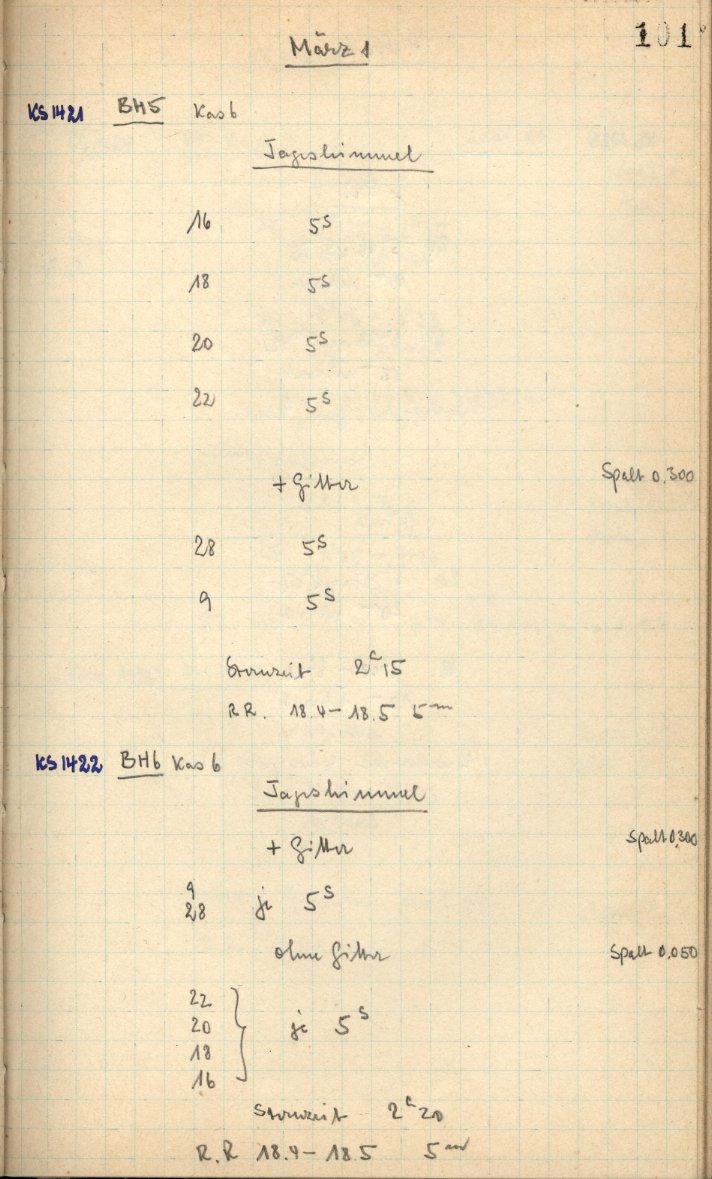 101
März 1
KS 1421 BH5 Kas 6
Tageshimmel
16 5s
18 5s
20 5s
22 5s
+ Gitter Spalt 0.300
28 5s
9 5s
Sternzeit 2h 15
RR. 18.4 – 18.5 5m
KS 1422 BH6 Kas 6
Tageshimmel
+ Gitter Spalt 0,300
9
28 je 5s
ohne Gitter Spalt 0.050
22
20 je 5s
18
16
Sternzeit 2h 20
R.R 18.4 – 18.5 5m